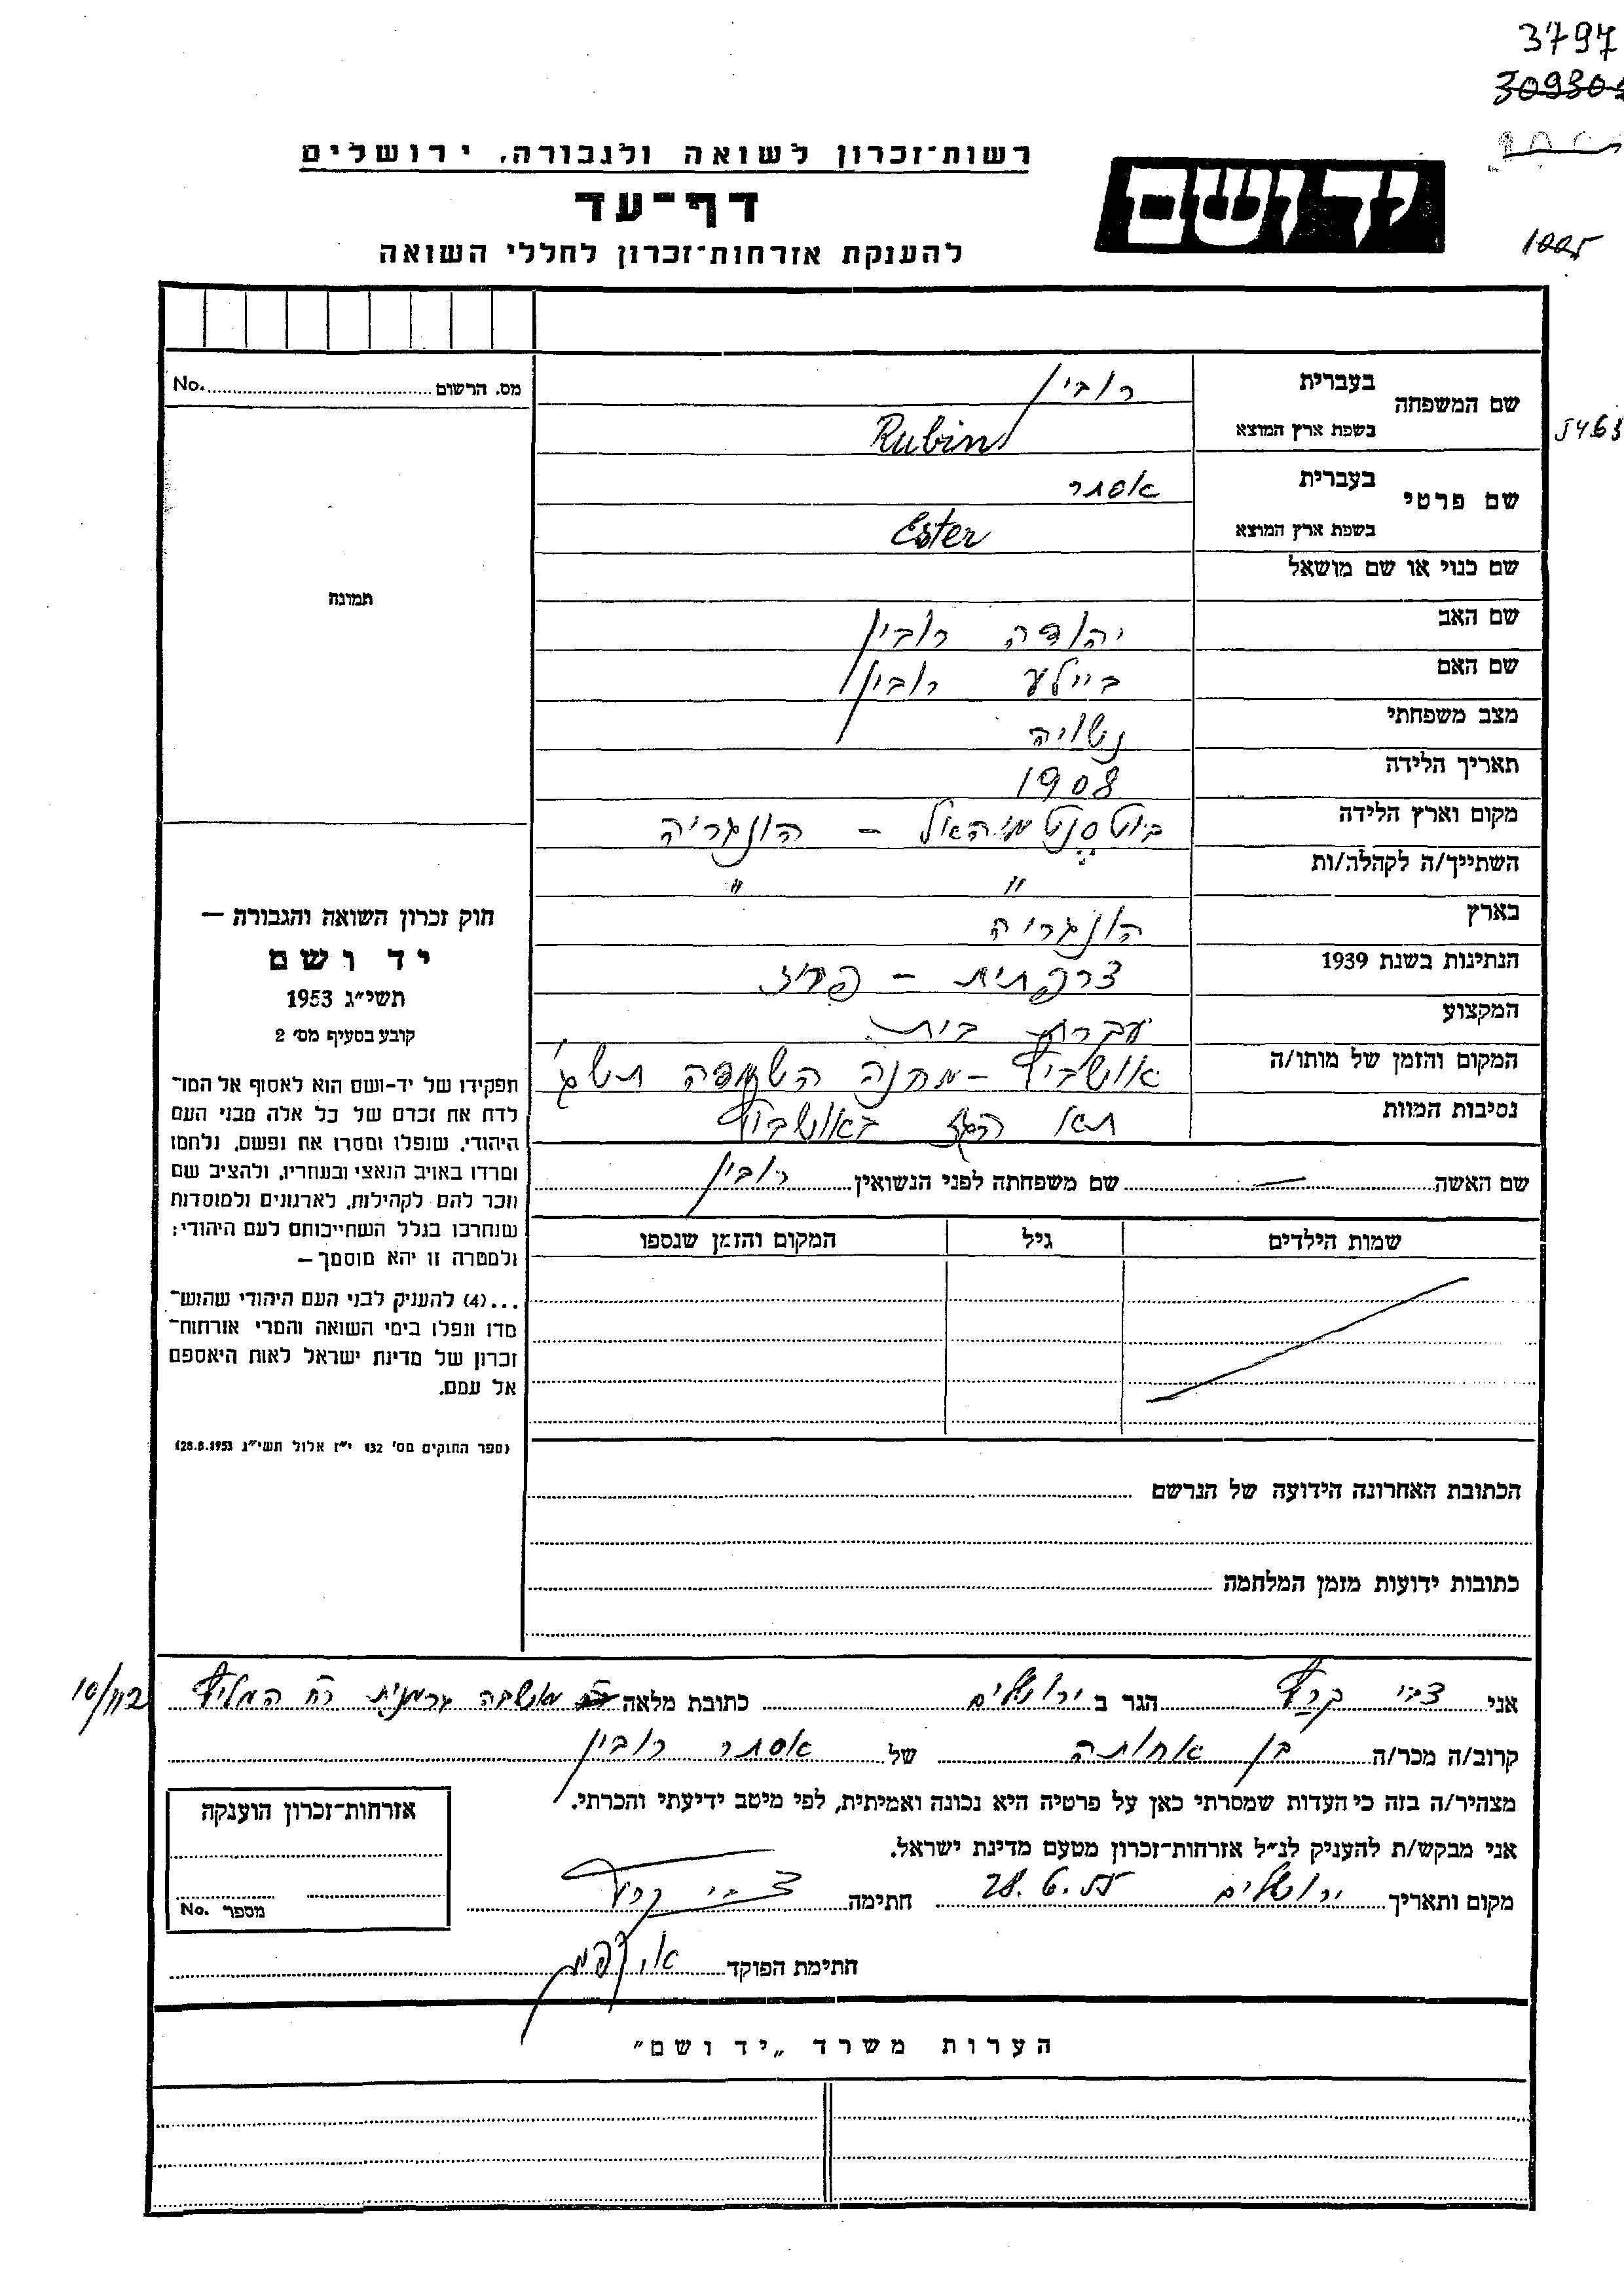 3797
309304
1005
רשות־זכרון לשואה ולגבורה, ירושלים
יד ושם
דף־עד
להענקת אזרחות־זכרון לחללי השואה
שם המשפחה בעברית רובין
בשפת ארץ המוצא Rubin
שם פרטי בעברית אסתר
בשפת ארץ המוצא Ester
שם כנוי או שם מושאל
שם האב יהודה רובין
שם האם ביילע רובין
מצב משפחתי נשויה
תאריך הלידה 1908
מקום וארץ הלידה בוטסנטמיהאל – הונגריה
השתייך/ה לקהלה/ות " "
בארץ הונגריה
הנתינות בשנת 1939 צרפתית – פריז
המקצוע עקרת בית
המקום והזמן של מותו/ה אושביץ – מחנה השמדה תש"ג
נסיבות המוות תאו הגז באושביץ
שם האשה — שם משפחתה לפני הנשואין רובין
שמות הילדים גיל המקום והזמן שנספו
הכתובת האחרונה הידועה של הנרשם
כתובות ידועות מזמן המלחמה
מס. הרשום No.
תמונה
חוק זכרון השואה והגבורה —
יד ושם
תשי"ג 1953
קובע בסעיף מס' 2
תפקידו של יד-ושם הוא לאסוף אל המו־
לדת את זכרם של כל אלה מבני העם
היהודי, שנפלו ומסרו את נפשם, נלחמו
ומרדו באויב הנאצי ובעוזריו, ולהציב שם
וזכר להם לקהילות, לארגונים ולמוסדות
שנחרבו בגלל השתייכותם לעם היהודי;
ולמטרה זו יהא מוסמך —
...(4) להעניק לבני העם היהודי שהוש־
מדו ונפלו בימי השואה והמרי אזרחות־
זכרון של מדינת ישראל לאות היאספם
אל עמם.
(ספר החוקים מס' 132 י"ז אלול תשי"ג 28.8.1953)
אני צבי קרץ הגר ב ירושלים כתובת מלאה מושבה גרמנית רח המליץ 10/112
קרוב/ה מכר/ה בן אחותה של אסתר רובין
מצהיר/ה בזה כי העדות שמסרתי כאן על פרטיה היא נכונה ואמיתית, לפי מיטב ידיעתי והכרתי.
אני מבקש/ת להעניק לנ"ל אזרחות־זכרון מטעם מדינת ישראל.
מקום ותאריך ירושלים 28.6.55 חתימה צבי קרץ
חתימת הפוקד
אזרחות־זכרון הוענקה
מספר No.
הערות משרד „יד ושם"